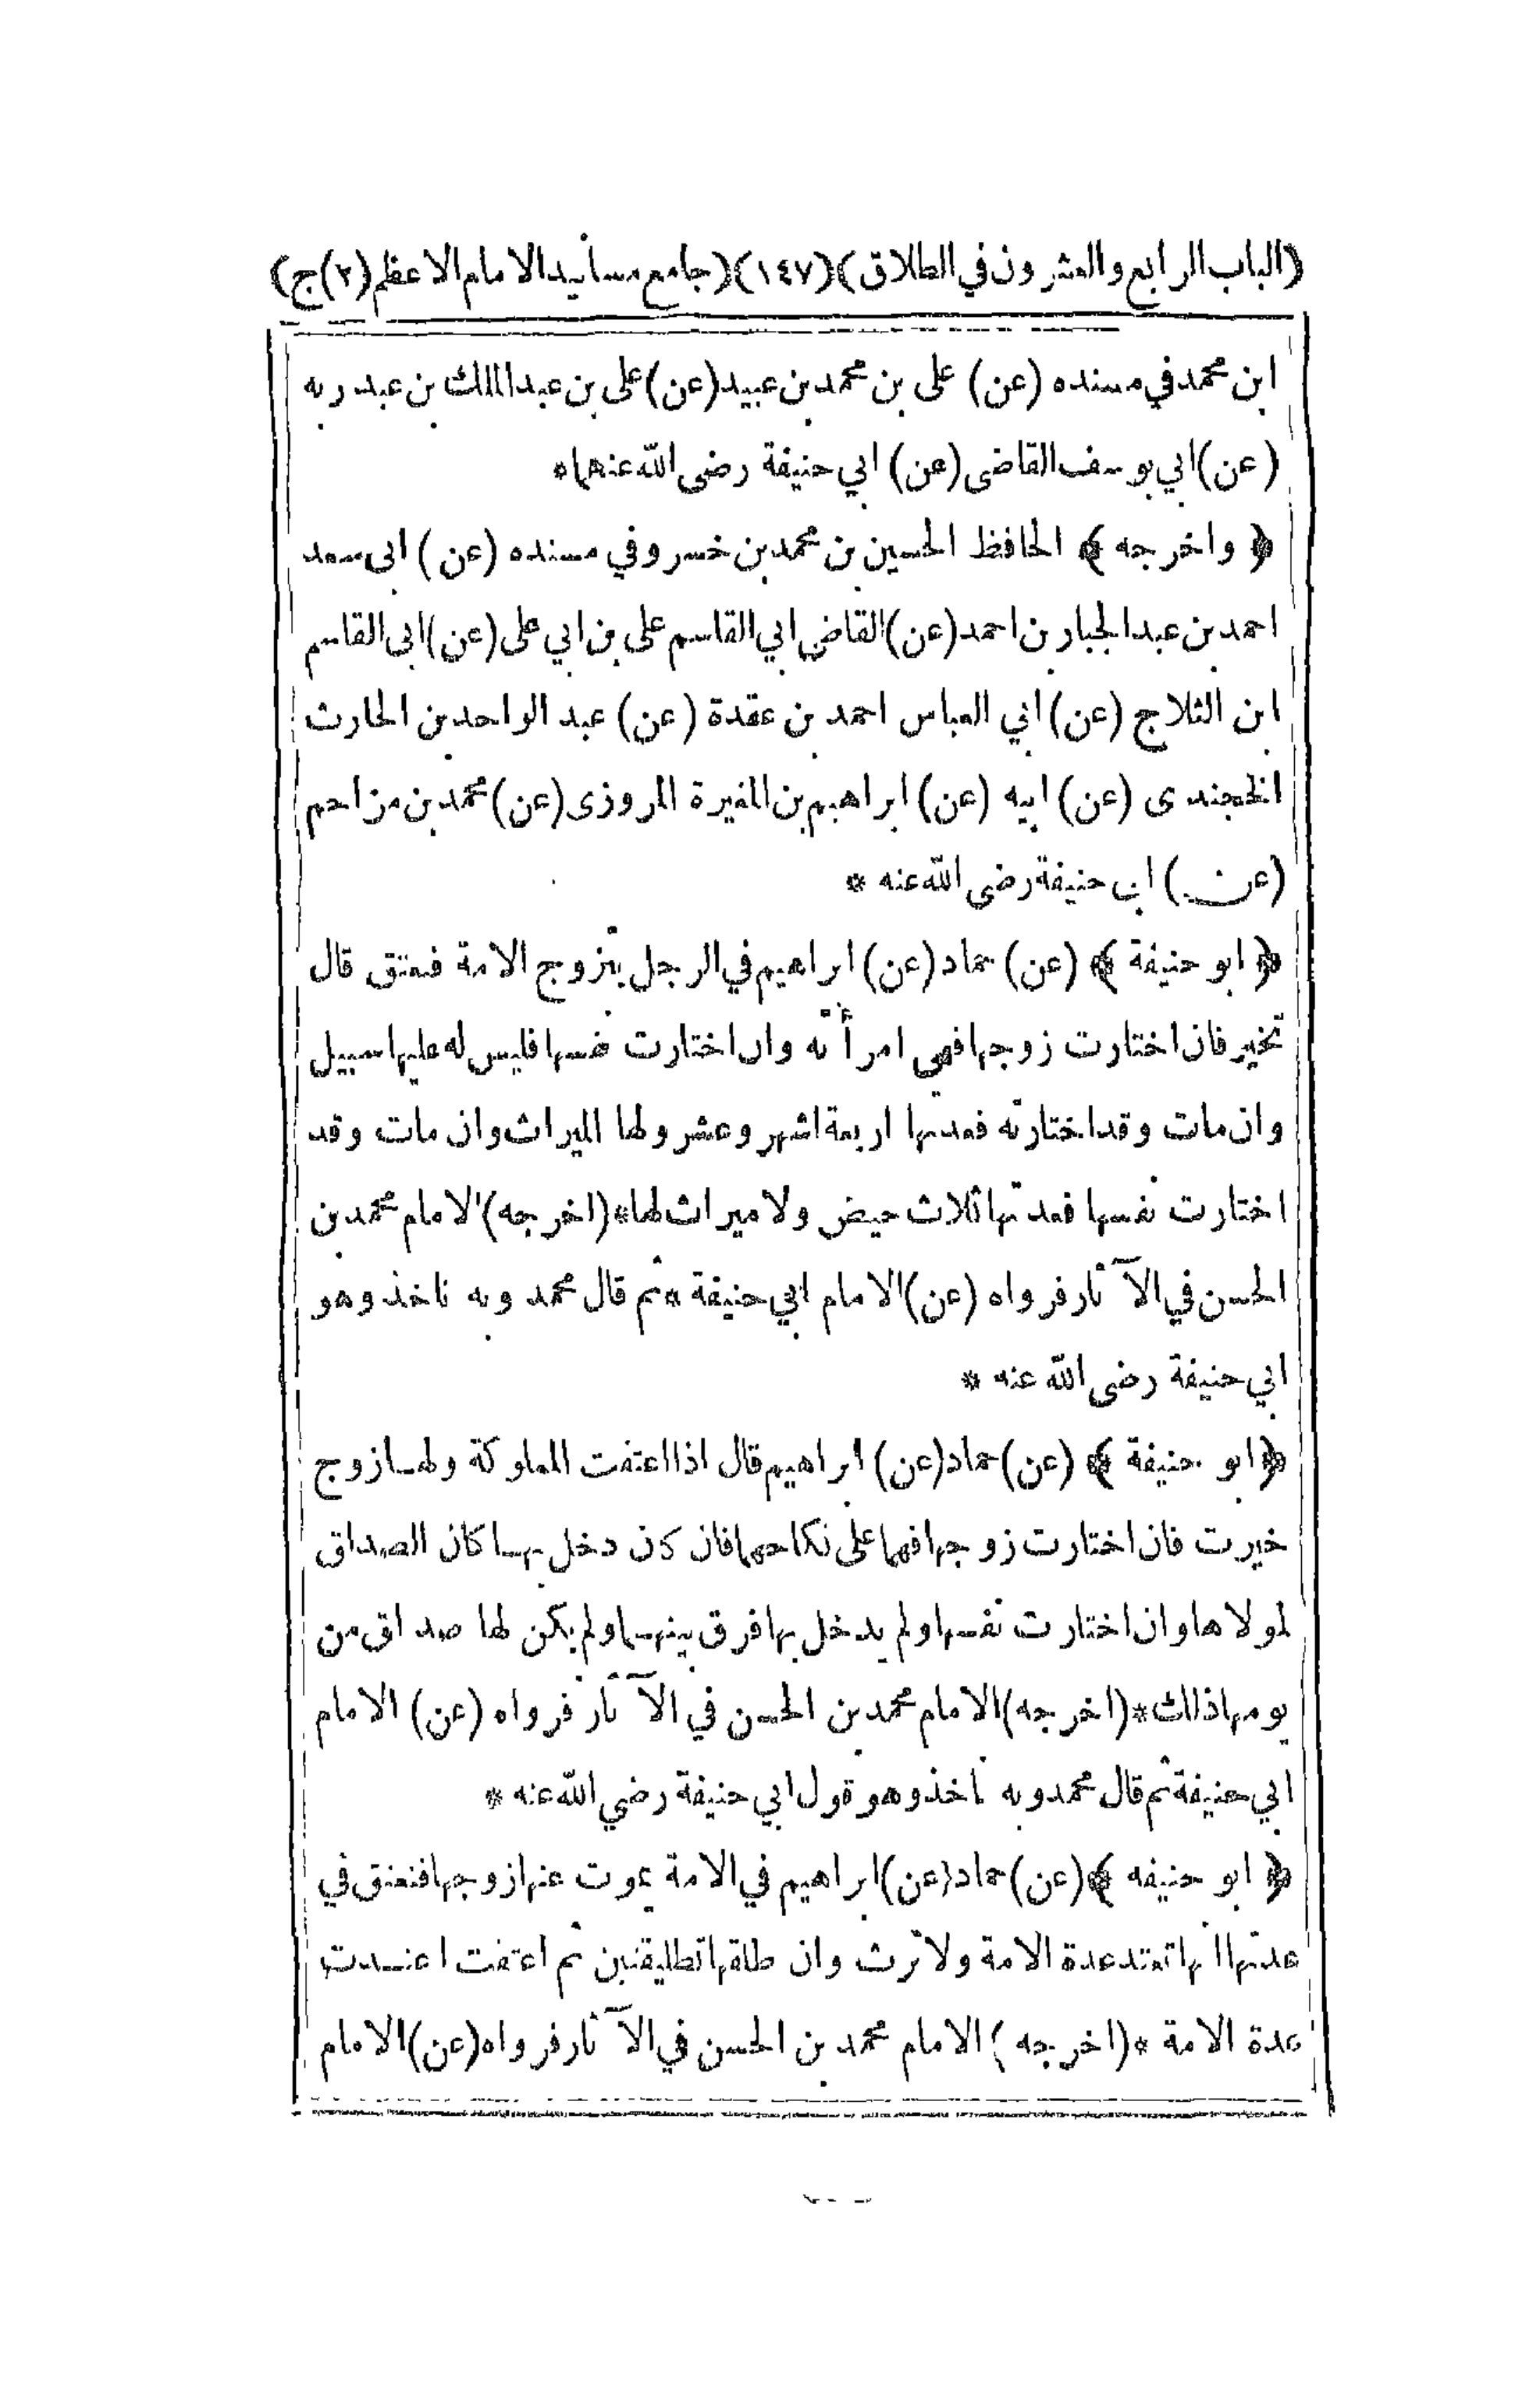 (الباب الرابع والعشرون في الطلاق) (١٤٧) (جامع مسانيد الامام الاعظم (٢) ج)
ابن محمد في مسنده (عن) على بن محمد بن عبيد (عن) على بن عبد الملك بن عبد ربه
(عن) ابي يوسف القاضى (عن) ابي حنيفة رضى الله عنهما*
﴿ واخرجه ﴾ الحافظ الحسين بن محمد بن خسرو في مسنده (عن) ابى سعد
احمد بن عبد الجبار بن احمد (عن) القاضى ابي القاسم على بن ابي على (عن) ابى القاسم
ابن الثلاج (عن) ابي العباس احمد بن عقدة (عن) عبد الواحد بن الحارث
الخجندى (عن) ابيه (عن) ابراهيم بن المغيرة المروزى (عن) محمد بن مزاحم
(عن) ابى حنيفة رضى الله عنه *
﴿ ابو حنيفة ﴾ (عن) حماد (عن) ابراهيم في الرجل يتزوج الامة فتعتق قال
تخير فان اختارت زوجها فهى امرأته وان اختارت نفسها فليس له عليها سبيل
وان مات وقد اختارته فعدتها اربعة اشهر وعشر ولها الميراث وان مات وقد
اختارت نفسها فعدتها ثلاث حيض ولا ميراث لها* (اخرجه) الامام محمد بن
الحسن في الآثار فرواه (عن) الامام ابي حنيفة * ثم قال محمد وبه ناخذ وهو
ابي حنيفة رضى الله عنه *
﴿ ابو حنيفة ﴾ (عن) حماد (عن) ابراهيم قال اذا اعتقت المملوكة ولها زوج
خيرت فان اختارت زوجها فهما على نكاحهما فان كان دخل بها كان الصداق
لمولاها وان اختارت نفسها ولم يدخل بها فرق بينهما ولم يكن لها صداق من
يومها ذلك* (اخرجه) الامام محمد بن الحسن في الآثار فرواه (عن) الامام
ابي حنيفة ثم قال محمد وبه ناخذ وهو قول ابي حنيفة رضي الله عنه *
﴿ ابو حنيفه ﴾ (عن) حماد (عن) ابراهيم في الامة يموت عنها زوجها فتعتق في
عدتها انها تعتد عدة الامة ولا ترث وان طلقها تطليقتين ثم اعتقت اعتدت
عدة الامة * (اخرجه) الامام محمد بن الحسن في الآثار فرواه (عن) الامام